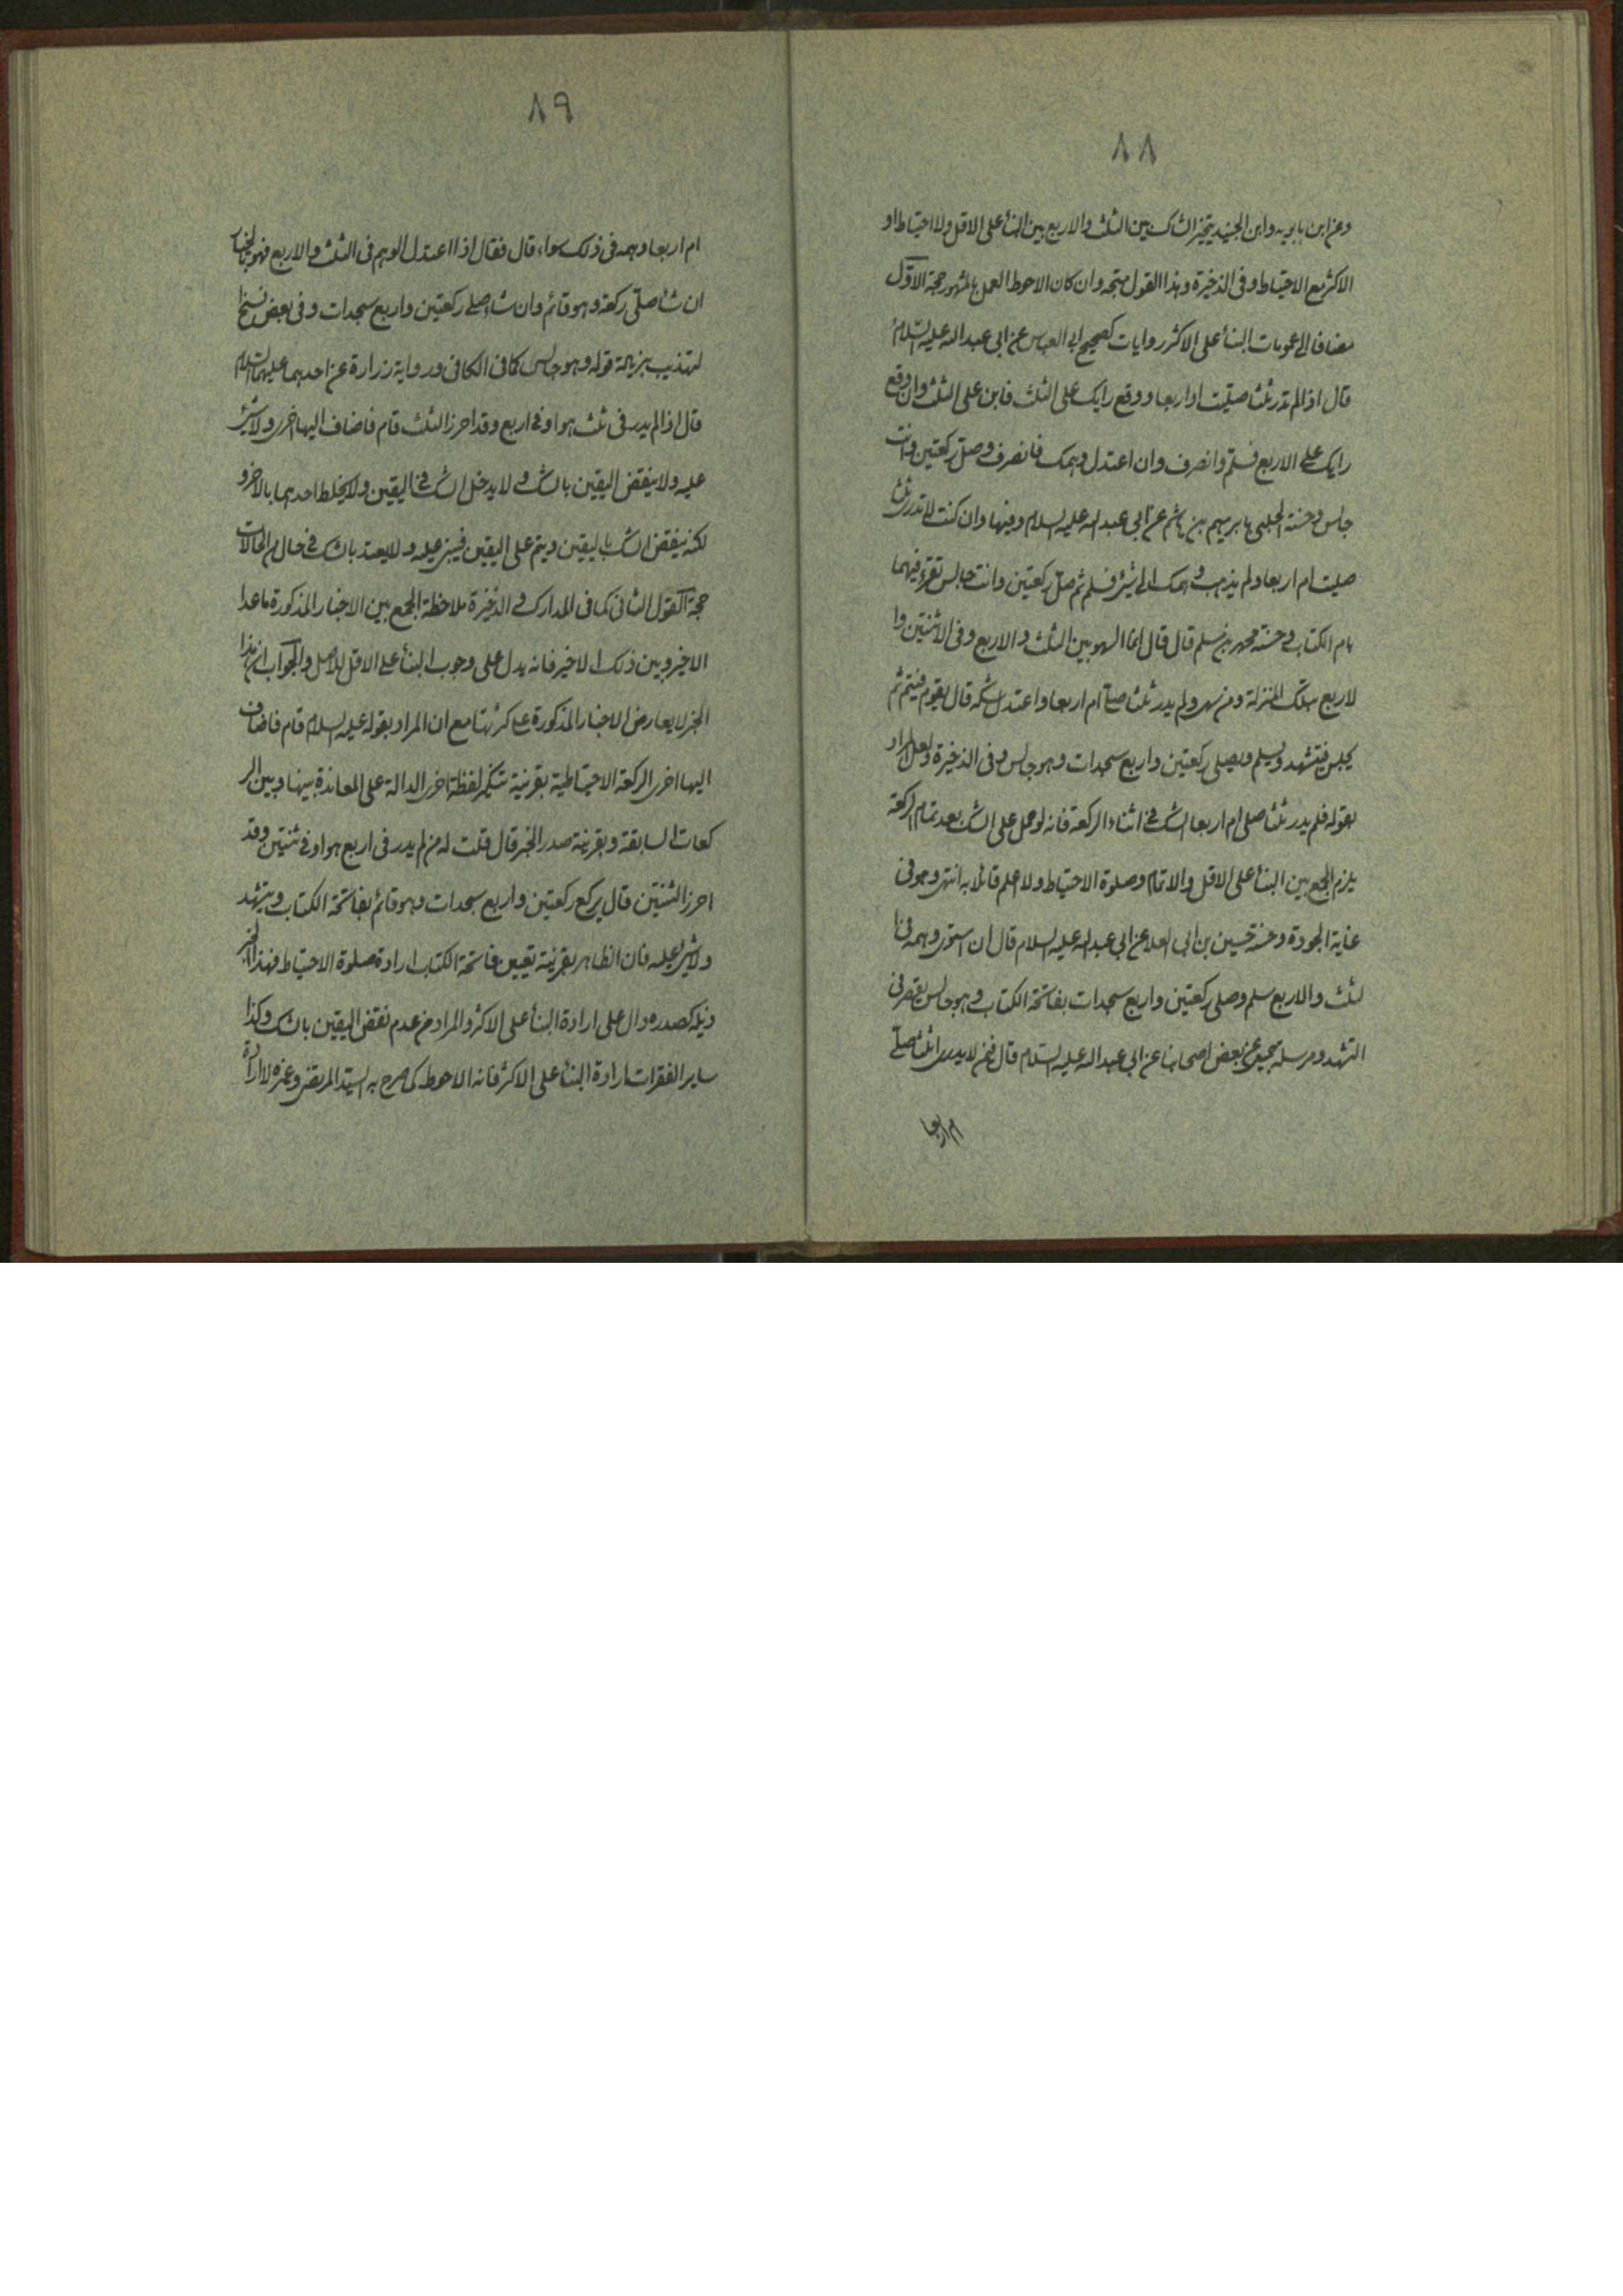 ٨٨
وعن ابن بابويه وابن الجنيد يتخير الشاك بين الثلث والاربع بين البناء على الاقل ولا احتياط او
الاكثر مع الاحتياط وفى الذخيرة وهذا القول متجه وان كان الاحوط العمل بالمشهور حجة الاول
مضافا الى عمومات البناء على الاكثر روايات كصحيح ابى العباس عن ابى عبد الله عليه السلام
قال اذا لم تدر ثلثا صليت او اربعا ووقع رايك على الثلث فابن على الثلث وان وقع
رايك على الاربع فسلم وانصرف وان اعتدل وهمك فانصرف وصل ركعتين وانت
جالس وحسنة الحلبى بابرهيم بن هاشم عن ابى عبد الله عليه السلام وفيها وان كنت لا تدرى ثلثا
صليت ام اربعا ولم يذهب وهمك الى شئ فسلم ثم صل ركعتين وانت جالس تقرء فيهما
بام الكتاب وحسنة محمد بن مسلم قال قال انما السهو بين الثلث والاربع وفى الاثنتين وا
لاربع بتلك المنزلة ومن سهى ولم يدر ثلثا صلى ام اربعا واعتدل شكه قال يقوم فيتم ثم
يجلس فيتشهد ويسلم ويصلى ركعتين واربع سجدات وهو جالس وفى الذخيرة ولعل المراد
بقوله فلم يدر ثلثا صلى ام اربعا الشك فى اثناء الركعة فانه لو حمل على الشك بعد تمام الركعة
يلزم الجمع بين البناء على الاقل والاتمام وصلوة الاحتياط ولا اعلم قائلا به انتهى وهو فى
غاية الجودة وحسنة حسين بن ابى العلا عن ابى عبد الله عليه السلام قال ان استوى وهمه فى ا
لثلث والاربع سلم وصلى ركعتين واربع سجدات بفاتحة الكتاب وهو جالس يقصر فى
التشهد ومرسلة جميل عن بعض اصحابنا عن ابى عبد الله عليه السلام قال فيمن لا يدرى اثلثا صلى
ام اربعا
٨٩
ام اربعا ووهمه فى ذلك سواء قال فقال اذا اعتدل الوهم فى الثلث والاربع فهو بالخيار
ان شاء صلى ركعة وهو قائم وان شاء صلى ركعتين واربع سجدات وفى بعض نسخ ا
لتهذيب بزيادة قوله وهو جالس كما فى الكافى ورواية زرارة عن احدهما عليهما السلام
قال اذا لم يدر فى ثلث هو او فى اربع وقد احرز الثلث قام فاضاف اليها اخرى ولا شئ
عليه ولا ينقض اليقين بالشك ولا يدخل الشك فى اليقين ولا يخلط احدهما بالاخر و
لكنه ينقض الشك باليقين ويتم على اليقين فيبنى عليه ولا يعتد بالشك فى حال من الحالات
حجة القول الثانى كما فى المدارك والذخيرة ملاحظة الجمع بين الاخبار المذكورة ما عدا
الاخير وبين ذلك الاخير فانه يدل على وجوب البناء على الاقل للاصل والجواب ان هذا
الخبر لا يعارض الاخبار المذكورة على كثرتها مع ان المراد بقوله عليه السلام قام فاضاف
اليها اخرى الركعة الاحتياطية بقرينة تنكير لفظة اخرى الدالة على المعاندة بينها وبين الر
كعات السابقة وبقرينة صدر الخبر قال قلت له من لم يدر فى اربع هو او فى ثنتين وقد
احرز الثنتين قال يركع ركعتين واربع سجدات وهو قائم بفاتحة الكتاب ويتشهد
ولا شئ عليه فان الظاهر بقرينة تعيين فاتحة الكتاب ارادة صلوة الاحتياط فهذا الخبر
ذيله كصدره دال على ارادة البناء على الاكثر والمراد من عدم نقض اليقين بالشك وكذا
ساير الفقرات ارادة البناء على الاكثر فانه الاحوط كما صرح به السيد المرتضى وغيره لا ارادة